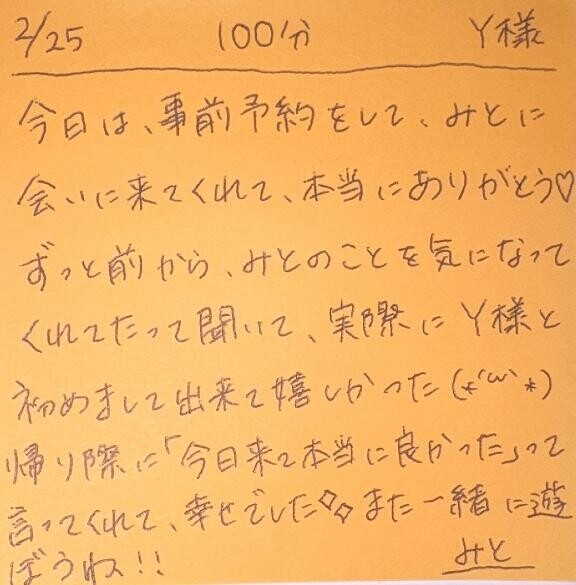 2/25 100分 Y様
今日は、事前予約をして、みとに
会いに来てくれて、本当にありがとう♡
ずっと前から、みとのことを気になって
くれてたって聞いて、実際にY様と
初めまして出来て嬉しかった(*´ω`*)
帰り際に「今日来て本当に良かった」って
言ってくれて、幸せでした◇◇また一緒に遊
ぼうね!!
みと